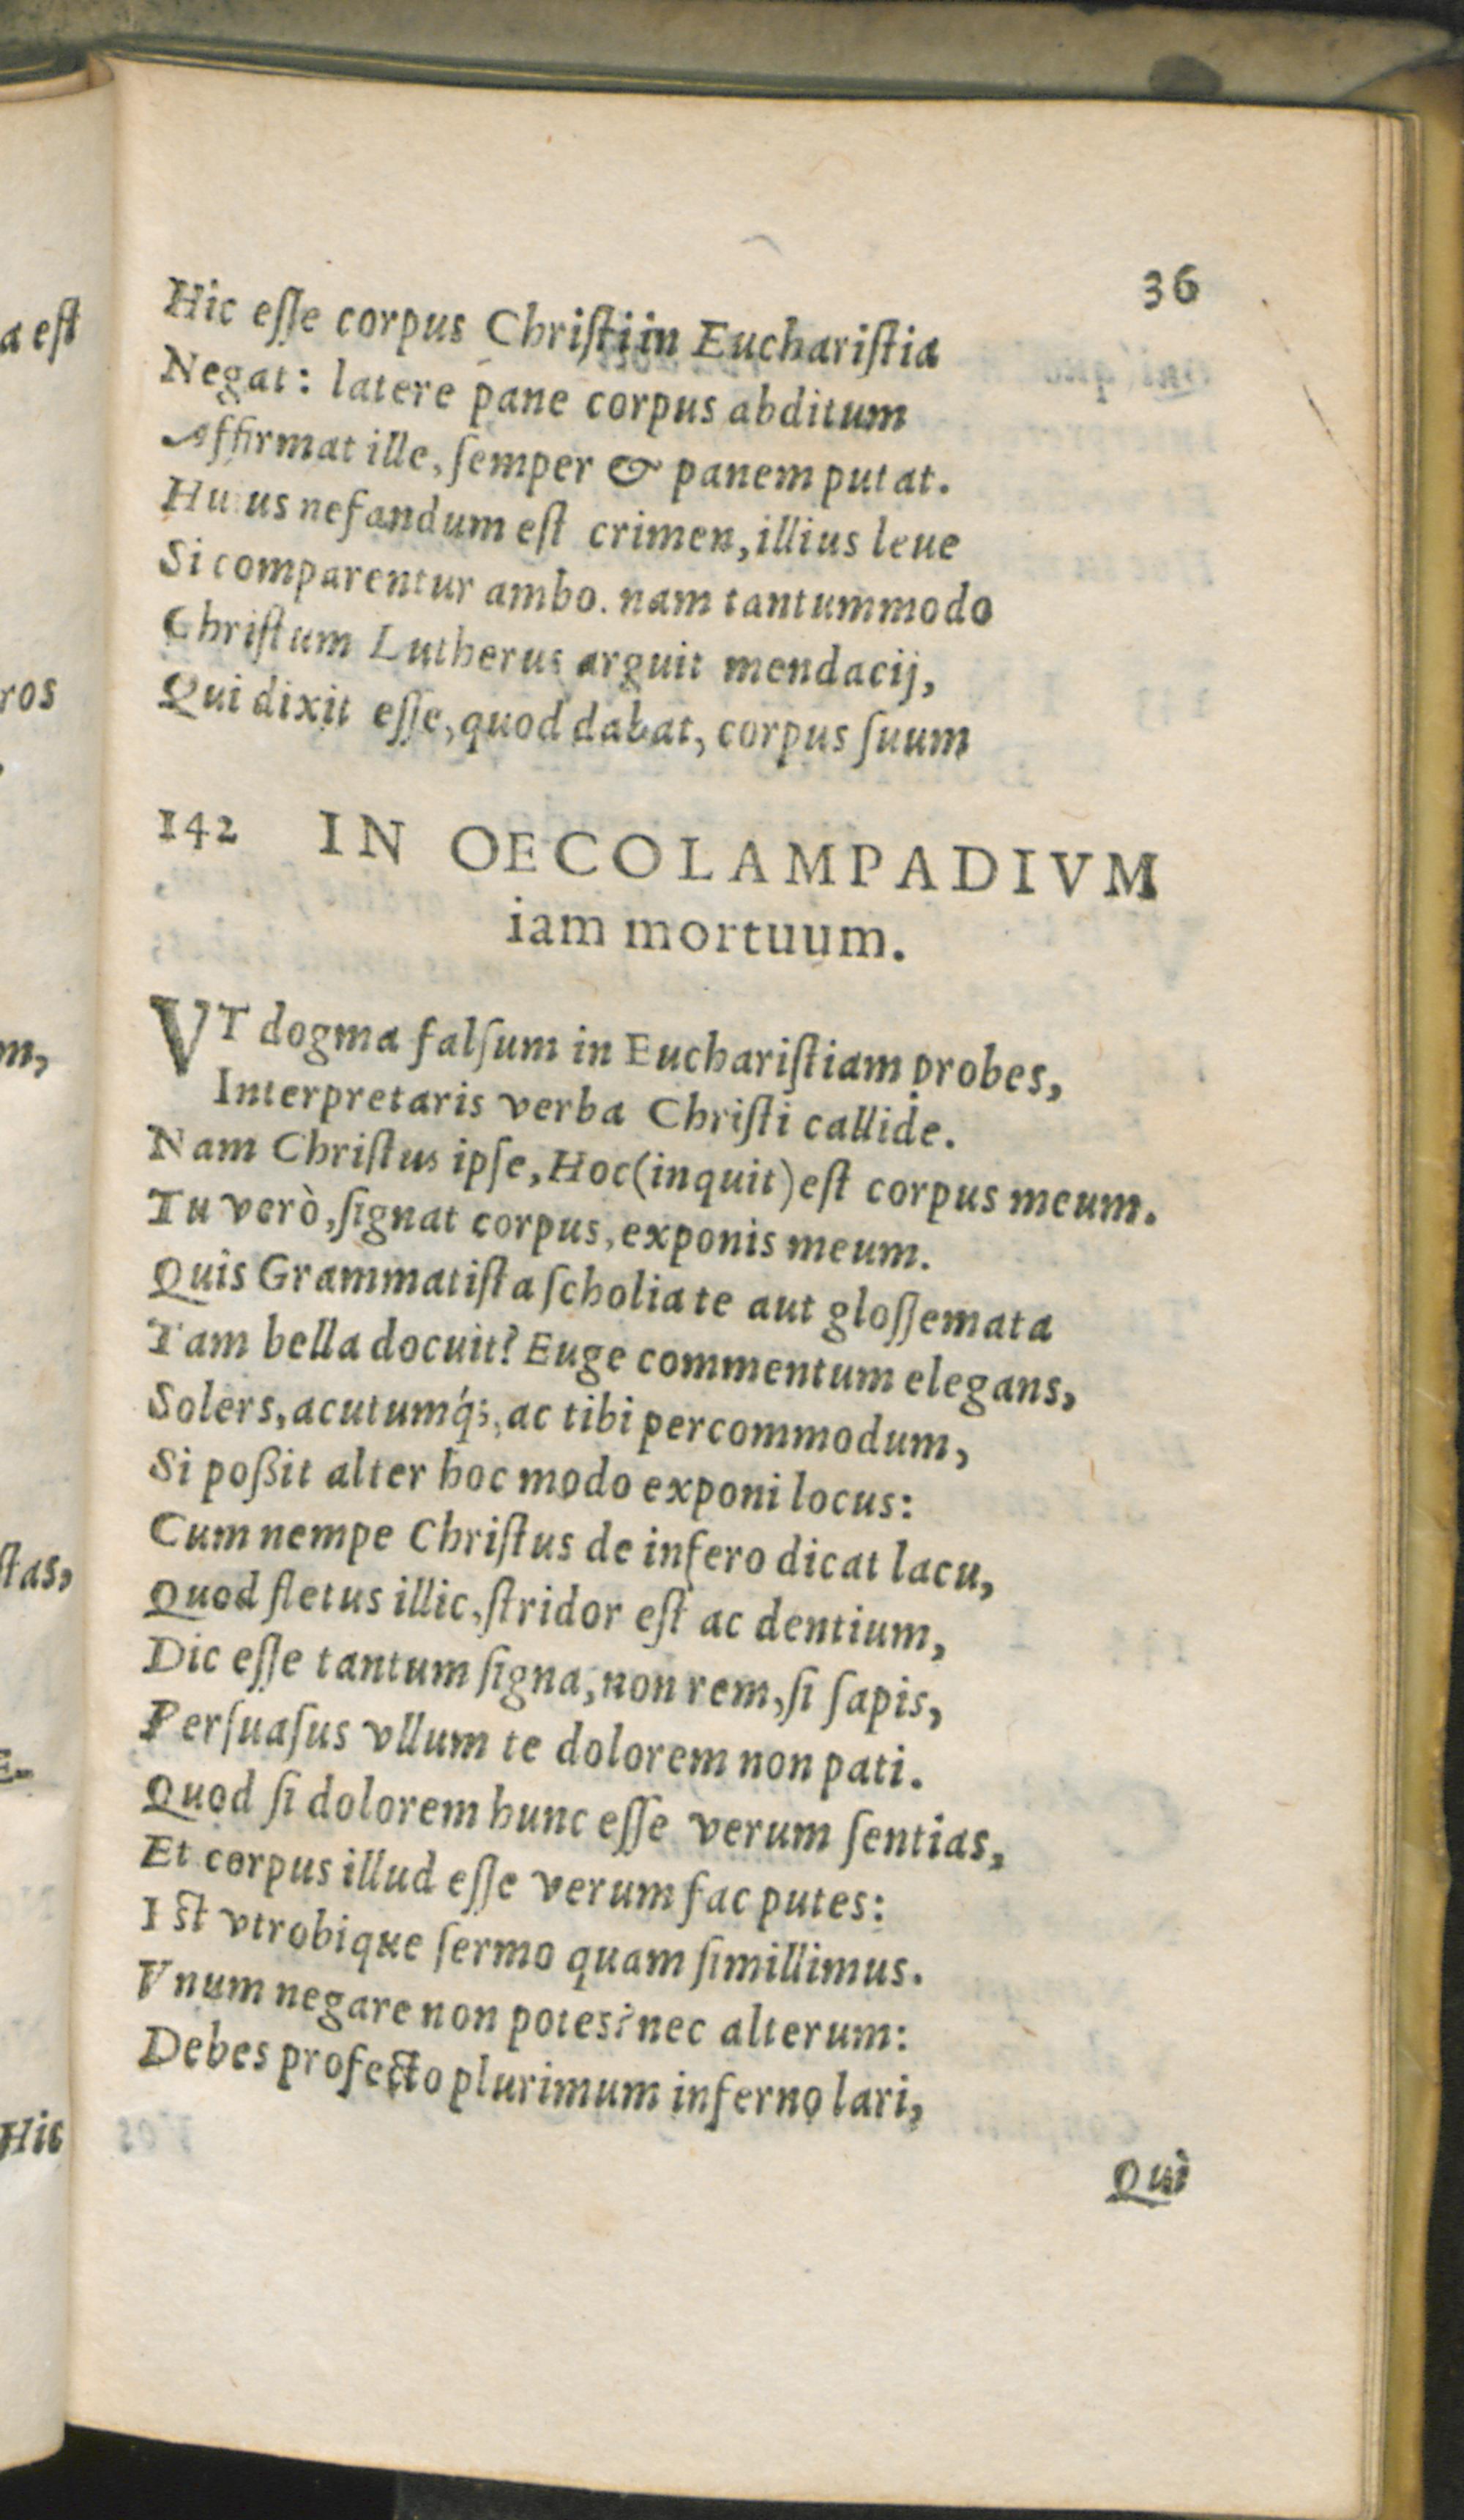 36
Hic eſſe corpus Chriſti in Euchariſtia
Negat: latere pane corpus abditum
Affirmat ille, ſemper & panem putat.
Huius nefandum eſt crimen, illius leue
Si comparentur ambo. nam tantummodo
Chriſtum Lutherus arguit mendacij,
Qui dixit eſſe, quod dabat, corpus ſuum
142 IN OECOLAMPADIVM
iam mortuum.
VT dogma falſum in Euchariſtiam probes,
Interpretaris verba Chriſti callide.
Nam Chriſtus ipſe, Hoc (inquit) eſt corpus meum.
Tu verò, ſignat corpus, exponis meum.
Quis Grammatiſta ſcholia te aut gloſſemata
Tam bella docuit? Euge commentum elegans,
Solers, acutumq́;, ac tibi percommodum,
Si poßit alter hoc modo exponi locus:
Cum nempe Chriſtus de infero dicat lacu,
Quod fletus illic, ſtridor eſt ac dentium,
Dic eſſe tantum ſigna, non rem, ſi ſapis,
Perſuaſus vllum te dolorem non pati.
Quod ſi dolorem hunc eſſe verum ſentias,
Et corpus illud eſſe verum fac putes:
Iſt vtrobique ſermo quam ſimillimus.
Vnum negare non potes? nec alterum:
Debes profecto plurimum inferno lari,
Qui
a eſt
ros
m,
ſtas,
E-
Hic